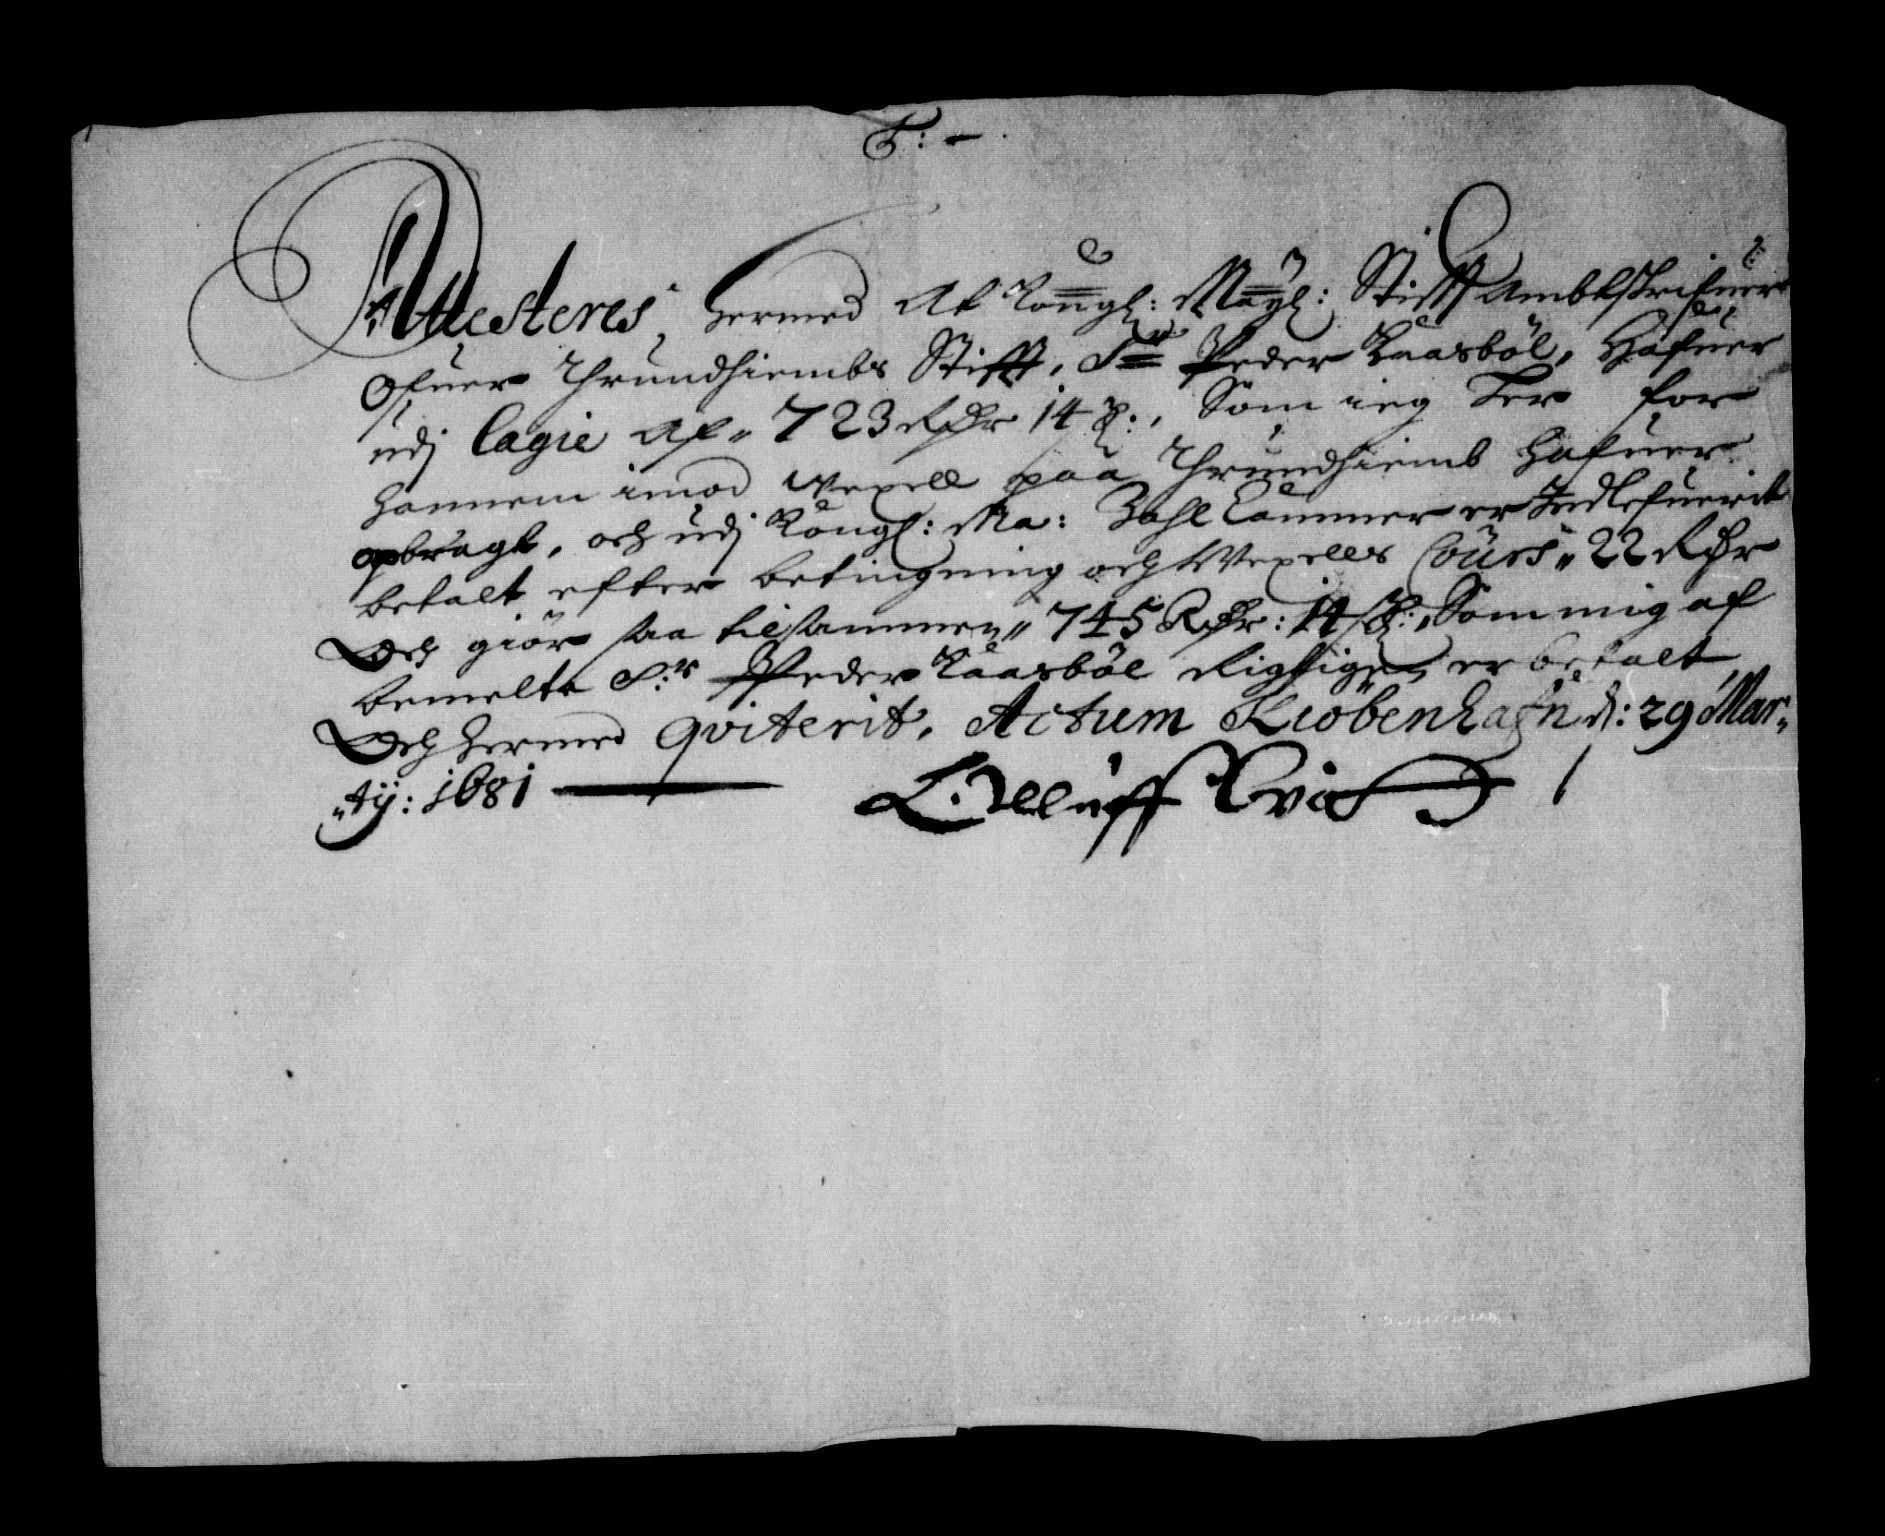 Attesteres hermed At Kongl: Mayl: Stifft Ambtskrifuer
Ofuer Thrundhiembs Stifft, Sr Peder Kaasböl, Hafuer
udj Lagie Af 723 Rdr 14 s:, Som ieg her for
hannem imod wexell paa Thrundhiemb hafuer
opbragt, och udj Kongl: Ma: Zahl Cammer er Indlefuerit
betalt efter betingning och Wexells Cours 22 Rdr
Och giör saa tilsammen 745 Rdr: 14 s: Som mig af
bemelte Sr: Peder Kaasböl Rigtigen er betalt
Och hermed qviterit, Actum Kiöbenhafn d: 29 Mar-
tij: 1681
Olluff